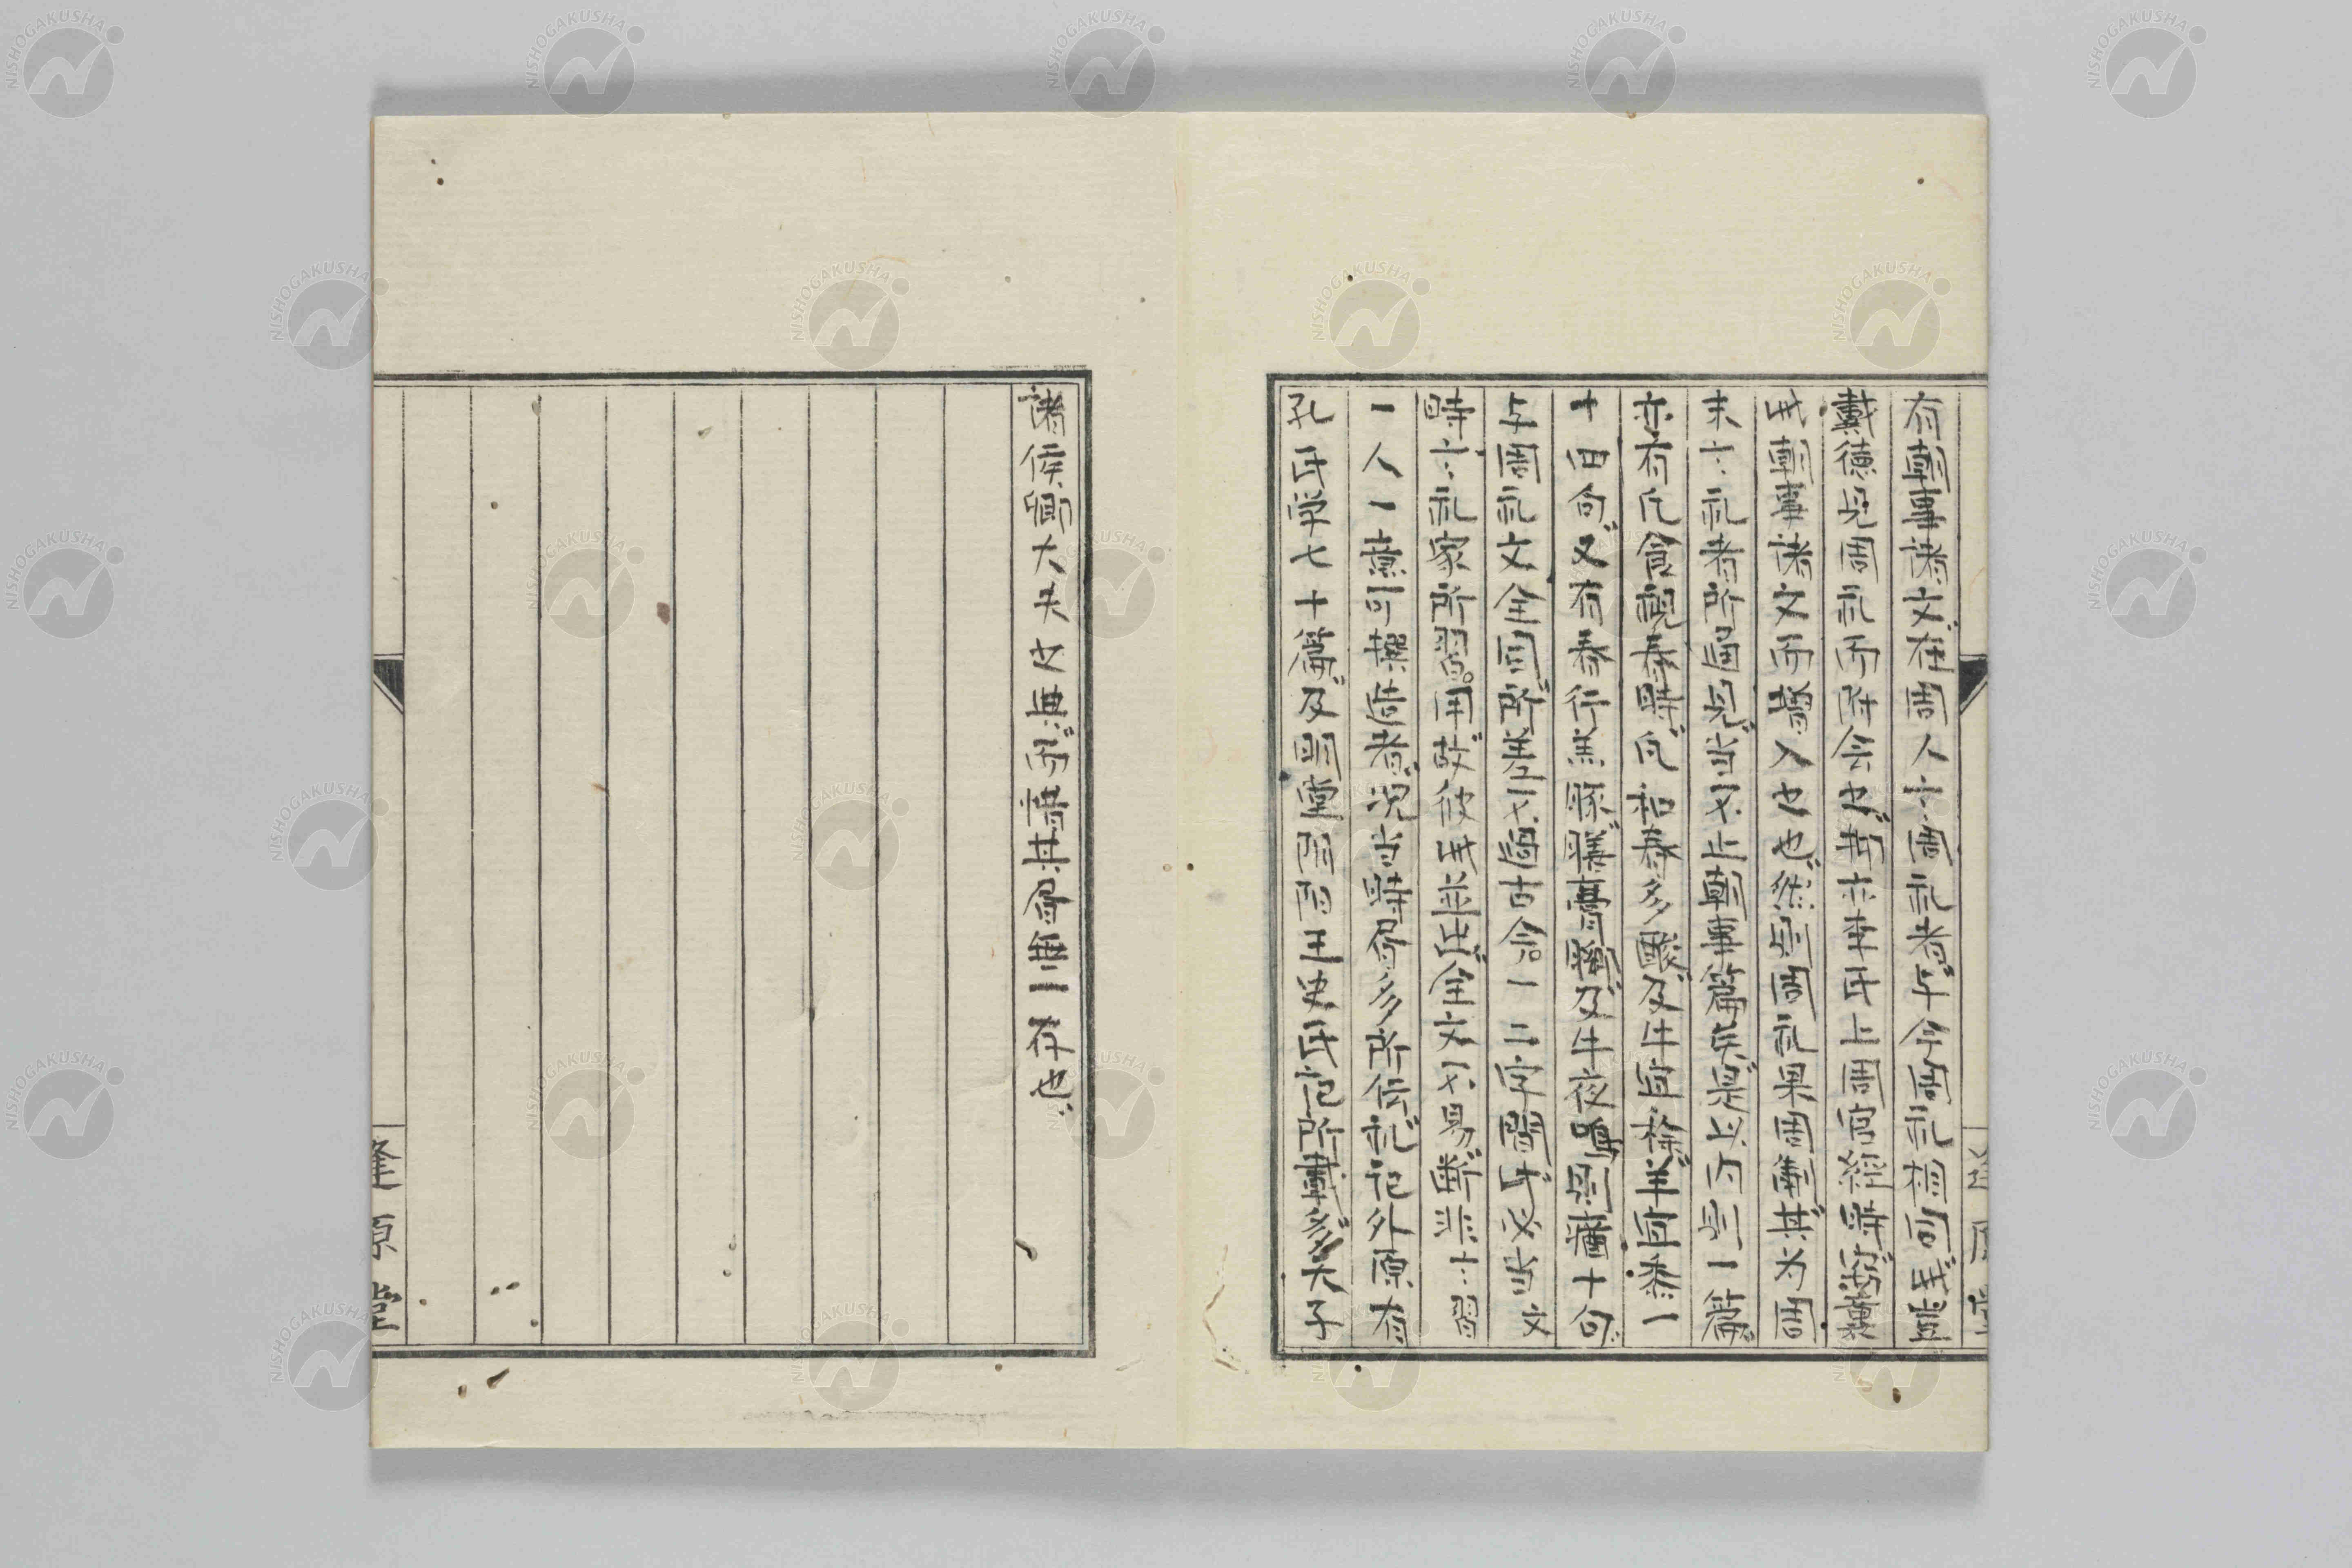 有朝事諸文在周人言周礼者与今周礼相同此豈
戴徳見周礼而附会之抑亦李氏上周官経時窃襲
此朝事諸文而攙入之也然則周礼果周書其为周
末言礼者所逓見当不止朝事篇矣是以内則一篇
亦有凡食視春時凡和春多酸及牛宜稌羊宜黍一
十四句又有春行羔豚膳膏薌及牛夜鳴則庮十句
与周礼文全同所差不過古今一二字間此必当
時言礼家所習用故彼此並出全文不易断非
一人一意可撰造者況当時得多所伝礼記外原有
孔氏学七十篇及明堂陰陽王史氏記所載多天子
諸侯卿大夫之典而惜其無一存也
逢原堂